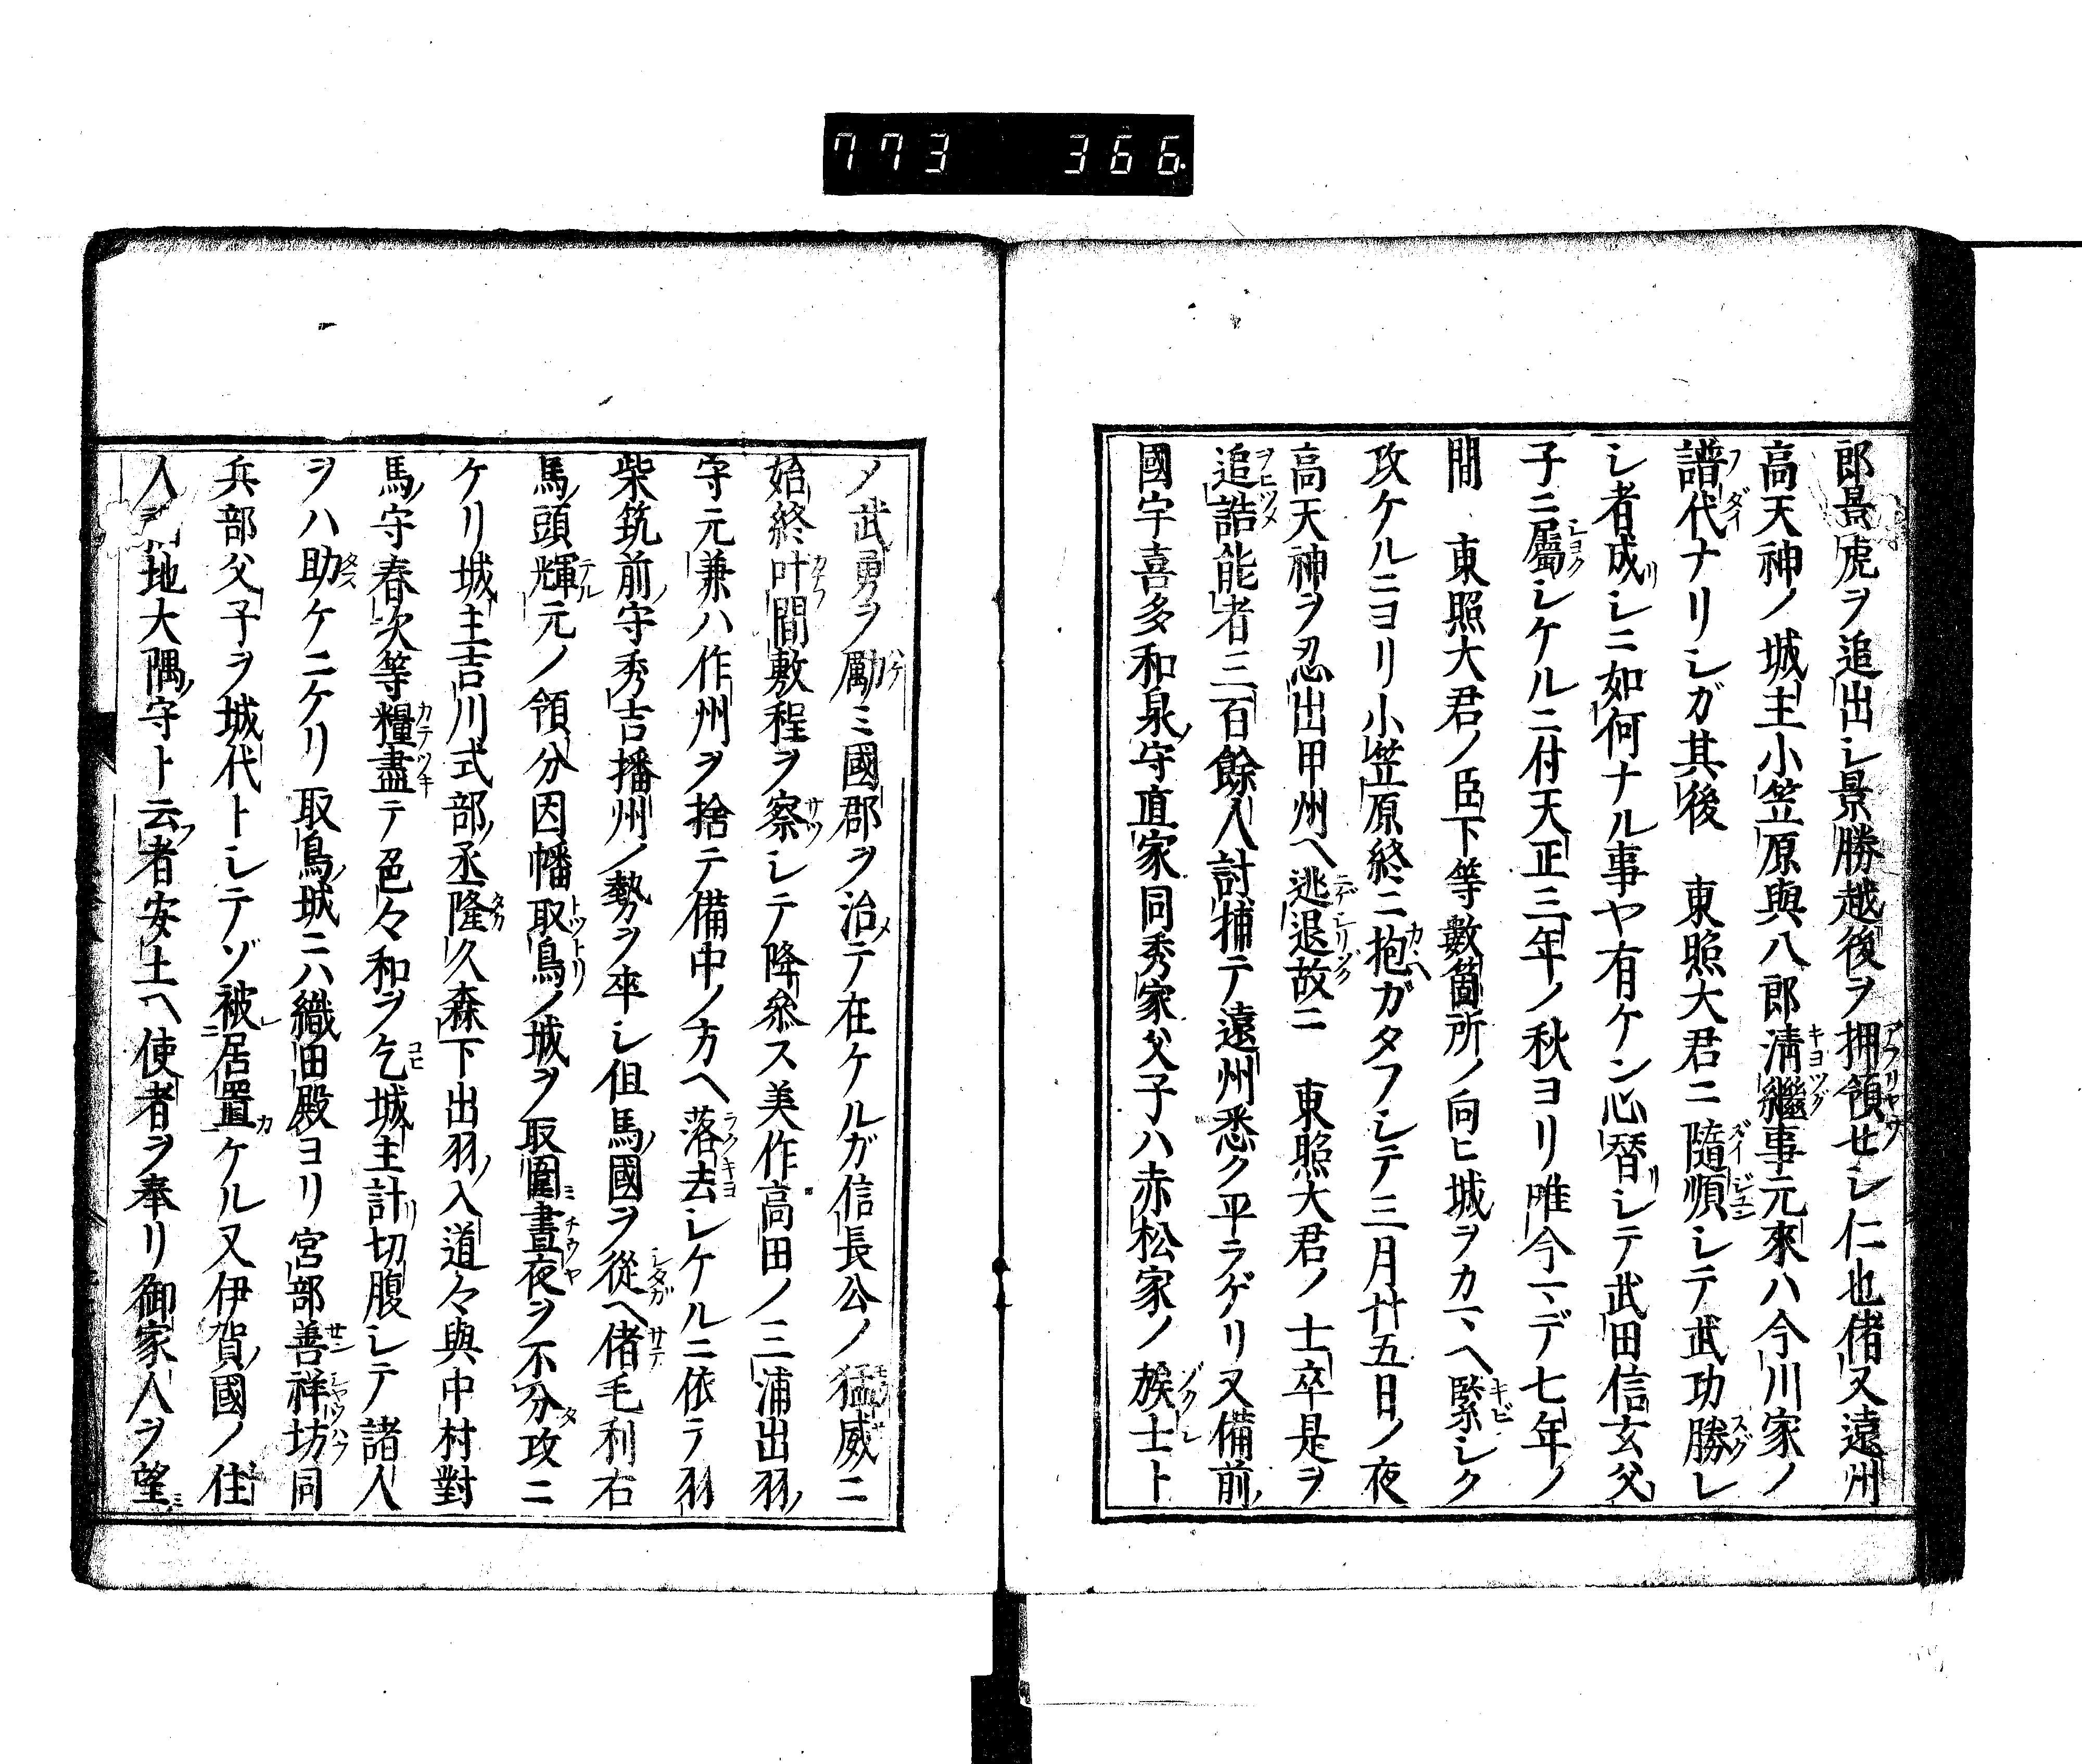 773 366
郎景虎ヲ追出シ景勝越後ヲ押領セシ仁也偖又遠州
高天神ノ城主小笠原與八郎淸繼事元來ハ今川家ノ
譜代ナリシガ其後 東照大君ニ隨順シテ武功勝レ
シ者成シニ如何ナル事ヤ有ケン心替リシテ武田信玄父
子ニ屬シケルニ付天正三年ノ秋ヨリ唯今マデ七年ノ
間 東照大君ノ臣下等數箇所ノ向ヒ城ヲカマヘ緊シク
攻ケルニヨリ小笠原終ニ抱ガタフシテ三月廿五日ノ夜
高天神ヲ忍出甲州ヘ逃退故ニ 東照大君ノ士卒是ヲ
追詰能者三百餘人討捕テ遠州悉ク平ラゲリ又備前
國宇喜多和泉守直家同秀家父子ハ赤松家ノ族士ト
ノ武勇ヲ勵ミ國郡ヲ治メテ在ケルガ信長公ノ猛威ニ
始終叶間敷程ヲ察シテ降參ス美作高田ノ三浦出羽
守元兼ハ作州ヲ捨テ備中ノ方ヘ落去シケルニ依テ羽
柴筑前守秀吉播州ノ勢ヲ卒シ但馬國ヲ從ヘ偖毛利右
馬頭輝元ノ領分因幡取鳥ノ城ヲ取圍ミ晝夜ヲ不分攻ニ
ケリ城主吉川式部丞隆久森下出羽入道々與中村對
馬守春次等糧盡テ色々和ヲ乞城主計リ切腹シテ諸人
ヲハ助ケニケリ取鳥城ニハ織田殿ヨリ宮部善祥坊同
兵部父子ヲ城代トシテゾ被居置ケル又伊賀國ノ住
人 地大隅守ト云者安土ヘ使者ヲ奉リ御家人ヲ望